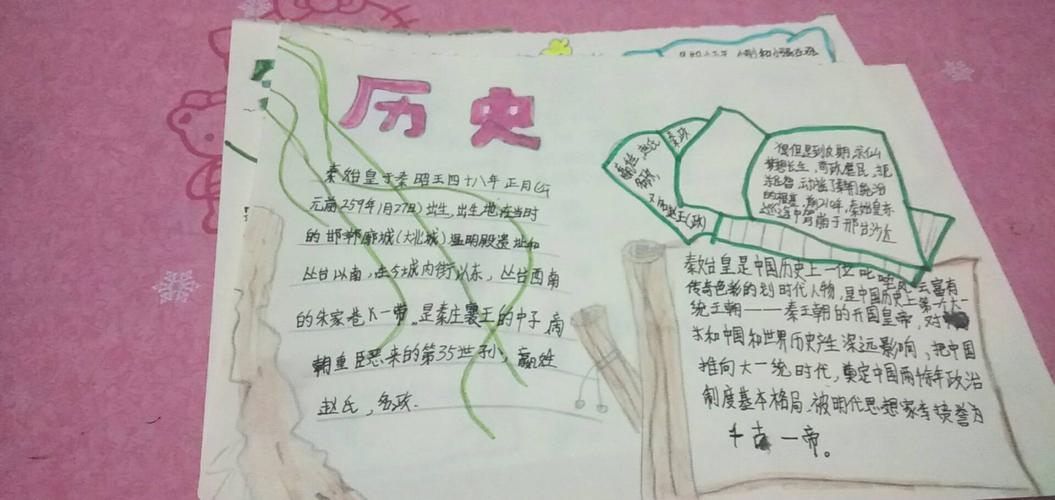 历史
秦始皇于秦昭王四十八年正月(公
元前259年1月27日)出生,出生地在当时
的邯郸廓城(大北城)温明殿遗址和
丛台以南,在今城内街以东,丛台西南
的朱家巷一带。是秦庄襄王的中子,商
朝重臣恶来的第35世孙,嬴姓
赵氏,名政.
嬴姓,赵氏
名政,
又称赵王(政)
秦政
但是到晚期,求仙
梦想长生,苛政虐民,扼
动摇了秦朝统治
的根基,前210年,秦始皇东
途中驾崩于邢台沙丘
秦始皇是中国历史上一位叱咤风云富有
传奇色彩的划时代人物,是中国历史上第一个大一
统王朝——秦王朝的开国皇帝,对
和中国和世界历史产生深远影响,把中国
推向大一统时代,奠定中国两千年政治
制度基本格局.被明代思想家李贽誉为
千古一帝。